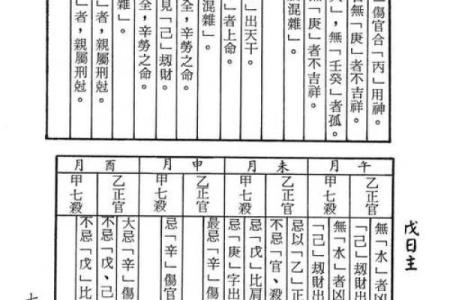 」傷官合「丙」用神。
者無「庚」者不吉祥。
」,無「壬癸」者孤。
無「庚」者不吉祥。
混雜」。
」出天干。
」者上命。
混雜」。
全,辛勞之命。
見「己」刼財。
全,辛勞之命。
混雜」。
」者,親屬刑尅。
」者,親屬刑尅。
戊日主
午月
乙正官
無「水」者凶
「己」刼財出
甲七殺
無「水」者凶
「己」刼財出
未月
乙正官
忌以「乙」正
不忌「官、殺
甲七殺
忌「戊」比肩
忌「庚」字出
申月
乙正官
最忌「辛」傷
甲七殺
忌「辛」傷官
酉月
乙正官
大忌「辛」傷
甲七殺
不忌「戊、己
不忌「戊」比
七